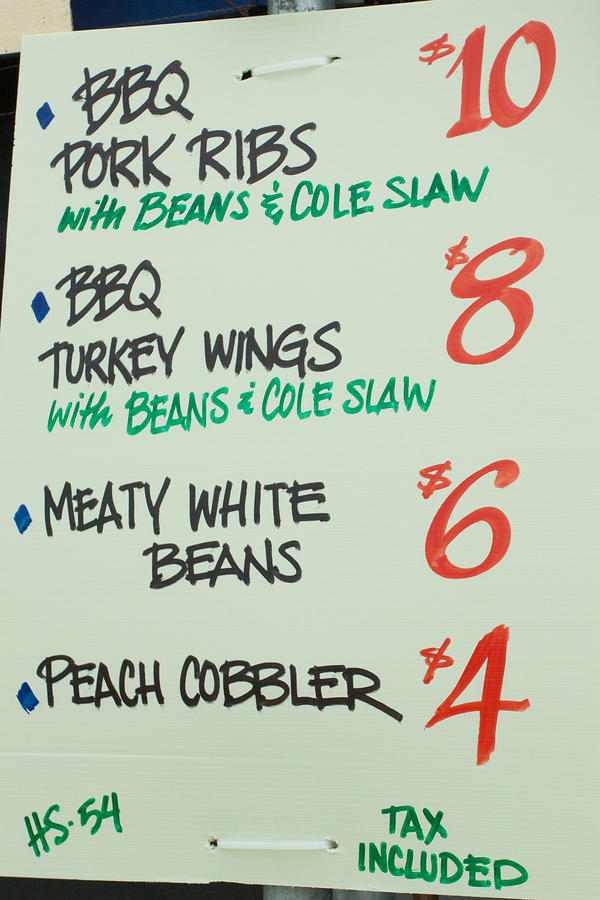 BBQ $10
PORK RIBS
with BEANS & COLE SLAW
BBQ $8
TURKEY WINGS
with BEANS & COLE SLAW
MEATY WHITE $6
BEANS
PEACH COBBLER $4
HS-54
TAX
INCLUDED